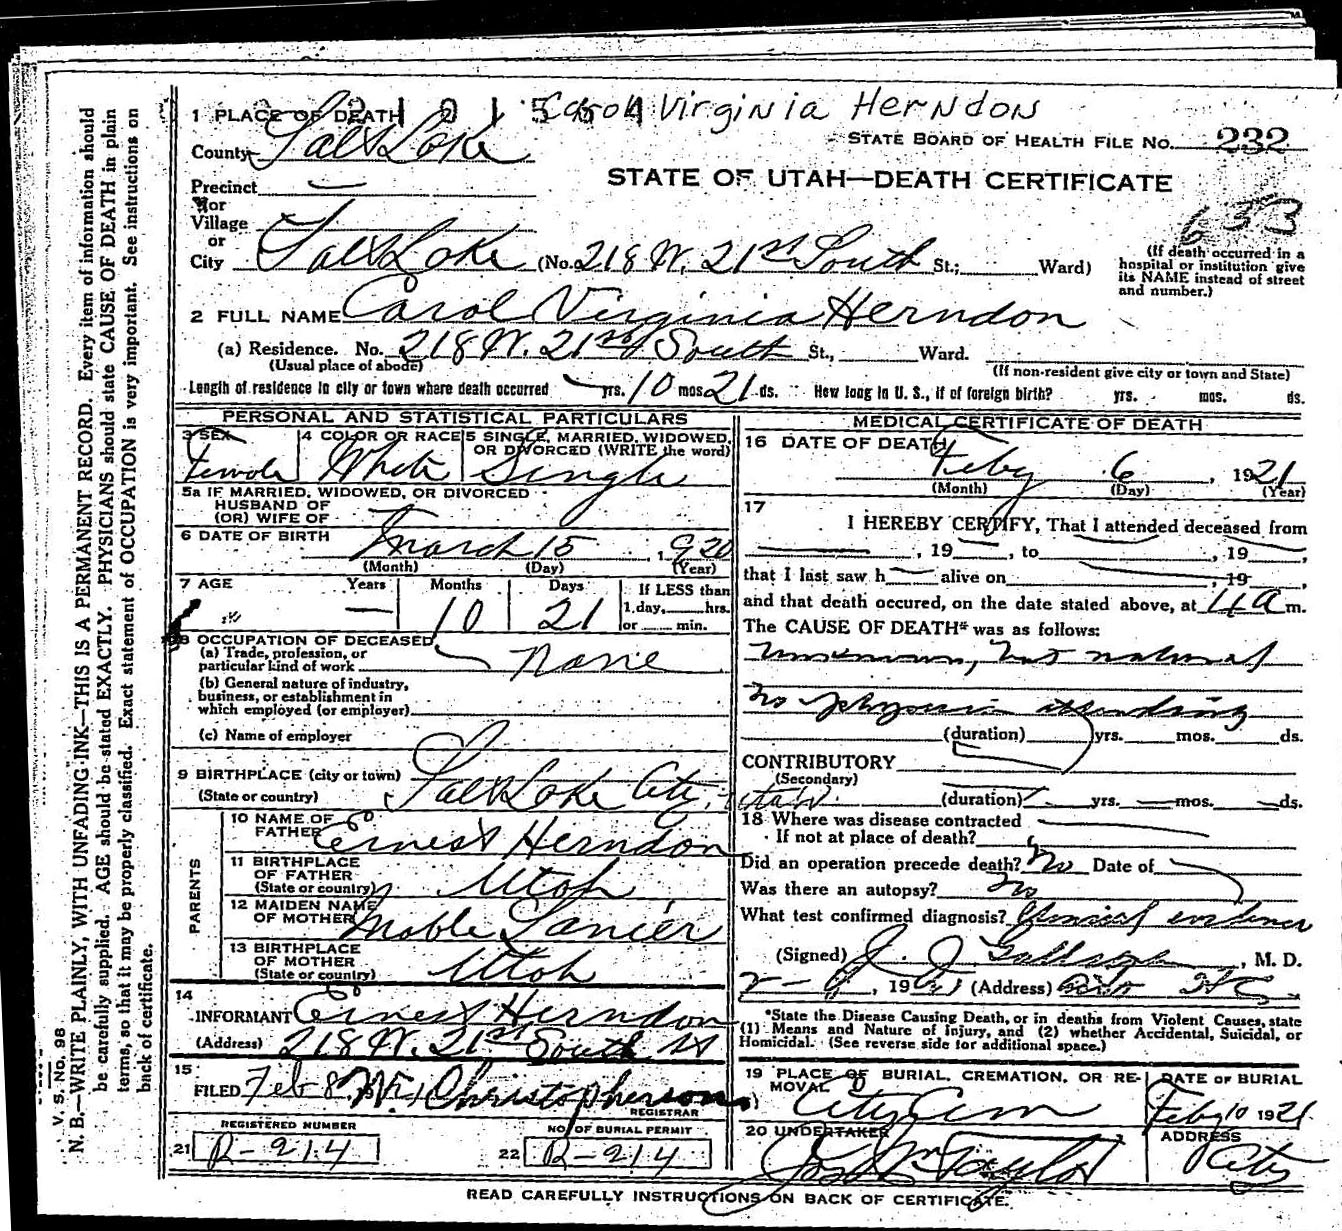 1 PLACE OF DEATH
2101564 Carol Virginia Herndon
County Salt Lake
STATE BOARD OF HEALTH FILE No. 232
Precinct —
STATE OF UTAH—DEATH CERTIFICATE
or
Village
633
or
City Salt Lake (No. 218 W. 21st South St.; Ward)
(If death occurred in a hospital or institution give its NAME instead of street and number.)
2 FULL NAME Carol Virginia Herndon
(a) Residence. No. 218 W. 21st South St., Ward.
(Usual place of abode) (If non-resident give city or town and State)
Length of residence in city or town where death occurred — yrs. 10 mos 21 ds. How long in U. S., if of foreign birth? yrs. mos. ds.
PERSONAL AND STATISTICAL PARTICULARS
3 SEX Female
4 COLOR OR RACE White
5 SINGLE, MARRIED, WIDOWED, OR DIVORCED (WRITE the word) Single
5a IF MARRIED, WIDOWED, OR DIVORCED
HUSBAND OF
(OR) WIFE OF
6 DATE OF BIRTH March 15, 1920
(Month) (Day) (Year)
7 AGE Years — Months 10 Days 21 If LESS than 1 day, hrs. or min.
8 OCCUPATION OF DECEASED
(a) Trade, profession, or
particular kind of work None
(b) General nature of industry,
business, or establishment in
which employed (or employer)
(c) Name of employer
9 BIRTHPLACE (city or town) Salt Lake City, Utah
(State or country)
PARENTS
10 NAME OF FATHER Ernest Herndon
11 BIRTHPLACE OF FATHER Utah
(State or country)
12 MAIDEN NAME OF MOTHER Mable Lanier
13 BIRTHPLACE OF MOTHER Utah
(State or country)
14
INFORMANT Ernest Herndon
(Address) 218 W. 21st South St
15
FILED Feb 8, Christopherson
REGISTRAR
REGISTERED NUMBER
21 R-214
NO. OF BURIAL PERMIT
22 R-214
MEDICAL CERTIFICATE OF DEATH
16 DATE OF DEATH Feby 6, 1921
(Month) (Day) (Year)
17
I HEREBY CERTIFY, That I attended deceased from
—, 19—, to —, 19—,
that I last saw h— alive on —, 19—,
and that death occured, on the date stated above, at 4 a m.
The CAUSE OF DEATH* was as follows:
Unknown, but natural
No physician attending
(duration) yrs. mos. ds.
CONTRIBUTORY
(Secondary)
(duration) — yrs. — mos. — ds.
18 Where was disease contracted
If not at place of death?
Did an operation precede death? No Date of
Was there an autopsy? No
What test confirmed diagnosis? Clinical evidence
(Signed) J. J. Gallagher, M. D.
1921 (Address)
*State the Disease Causing Death, or in deaths from Violent Causes, state
(1) Means and Nature of Injury, and (2) whether Accidental, Suicidal, or
Homicidal. (See reverse side for additional space.)
19 PLACE OF BURIAL, CREMATION, OR REMOVAL City Cem
DATE OF BURIAL Feby 10 1921
20 UNDERTAKER Jos Wm Taylor
ADDRESS City
READ CAREFULLY INSTRUCTIONS ON BACK OF CERTIFICATE.
V. S. No. 98
N. B.—WRITE PLAINLY, WITH UNFADING INK—THIS IS A PERMANENT RECORD. Every item of information should
be carefully supplied. AGE should be stated EXACTLY. PHYSICIANS should state CAUSE OF DEATH in plain
terms, so that it may be properly classified. Exact statement of OCCUPATION is very important. See instructions on
back of certificate.